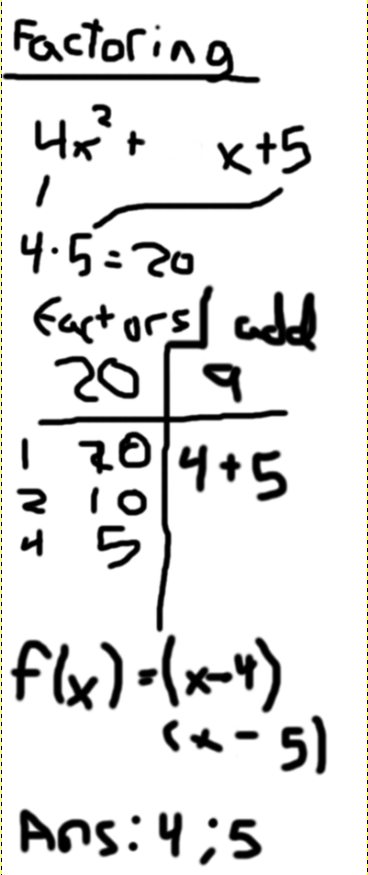 Factoring
4x² + x+5
4·5=20
Factors add
20 9
1 20 4+5
2 10
4 5
f(x)=(x-4)
(x-5)
Ans: 4;5